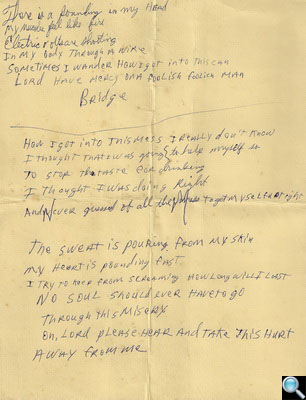 There is a pounding in my Head
My muscles feel like fire
Electric
In My body Through A wire
Sometimes I wander How I got into this
Lord Have Mercy on A foolish foolish man
Bridge
How I got into This Mess I really don't know
I thought that I was going to help myself
To stop the taste for drinking
I thought I was doing Right
And Never guessed of all the to get myself right
The sweat is pouring from my skin
my Heart is pounding fast
I try to keep from screaming How long will I last
No soul should ever have to go
Through this Misery
Oh, Lord please HEAR And take This Hurt
Away from me